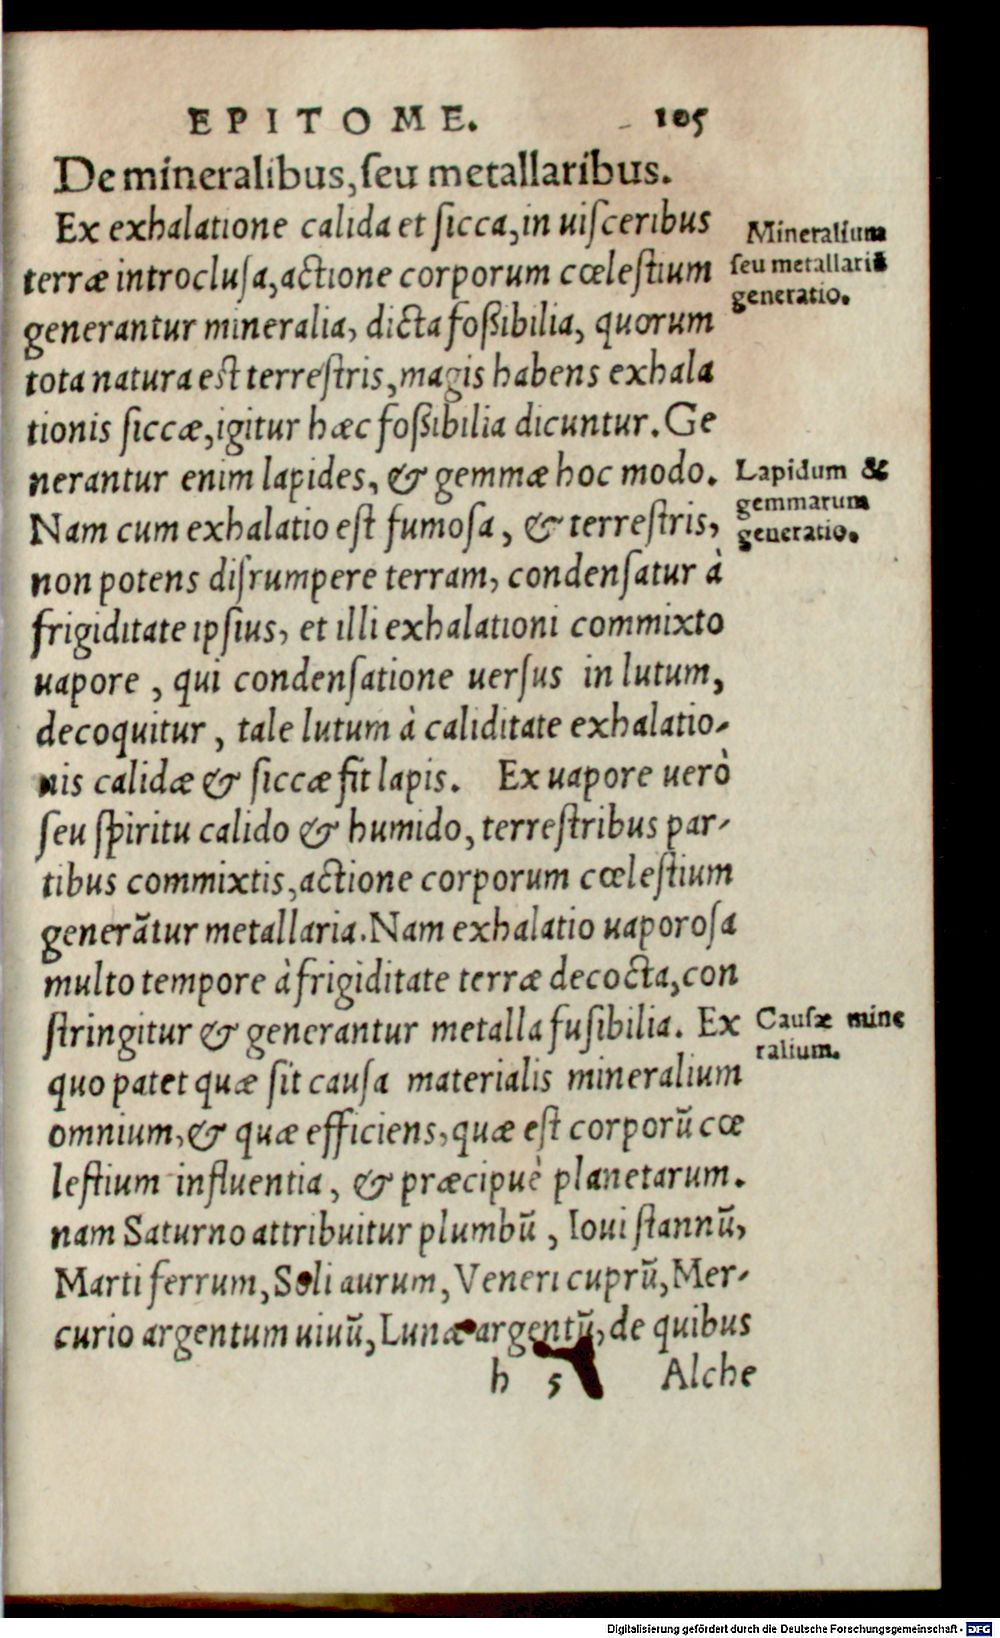 EPITOME. 105
De mineralibus, ſeu metallaribus.
Ex exhalatione calida et ſicca, in uiſceribus
terræ introcluſa, actione corporum cœleſtium
generantur mineralia, dicta foßibilia, quorum
tota natura est terreſtris, magis habens exhala
tionis ſiccæ, igitur hæc foßibilia dicuntur. Ge
nerantur enim lapides, & gemmæ hoc modo.
Nam cum exhalatio eſt fumoſa, & terreſtris,
non potens diſrumpere terram, condenſatur à
frigiditate ipſius, et illi exhalationi commixto
uapore, qui condenſatione uerſus in lutum,
decoquitur, tale lutum à caliditate exhalatio-
nis calidæ & ſiccæ fit lapis. Ex uapore uerò
ſeu ſpiritu calido & humido, terreſtribus par-
tibus commixtis, actione corporum cœleſtium
generātur metallaria. Nam exhalatio uaporoſa
multo tempore à frigiditate terræ decocta, con
ſtringitur & generantur metalla fuſibilia. Ex
quo patet quæ ſit cauſa materialis mineralium
omnium, & quæ efficiens, quæ eſt corporū cœ
leſtium influentia, & præcipuè planetarum.
nam Saturno attribuitur plumbū, Ioui ſtannū,
Marti ferrum, Soli aurum, Veneri cuprū, Mer-
curio argentum uiuū, Lunæ argentū, de quibus
h 5 Alche
Mineralium
ſeu metallariū
generatio.
Lapidum &
gemmarum
generatio.
Cauſæ mine
ralium.
Digitalisierung gefördert durch die Deutsche Forschungsgemeinschaft - DFG